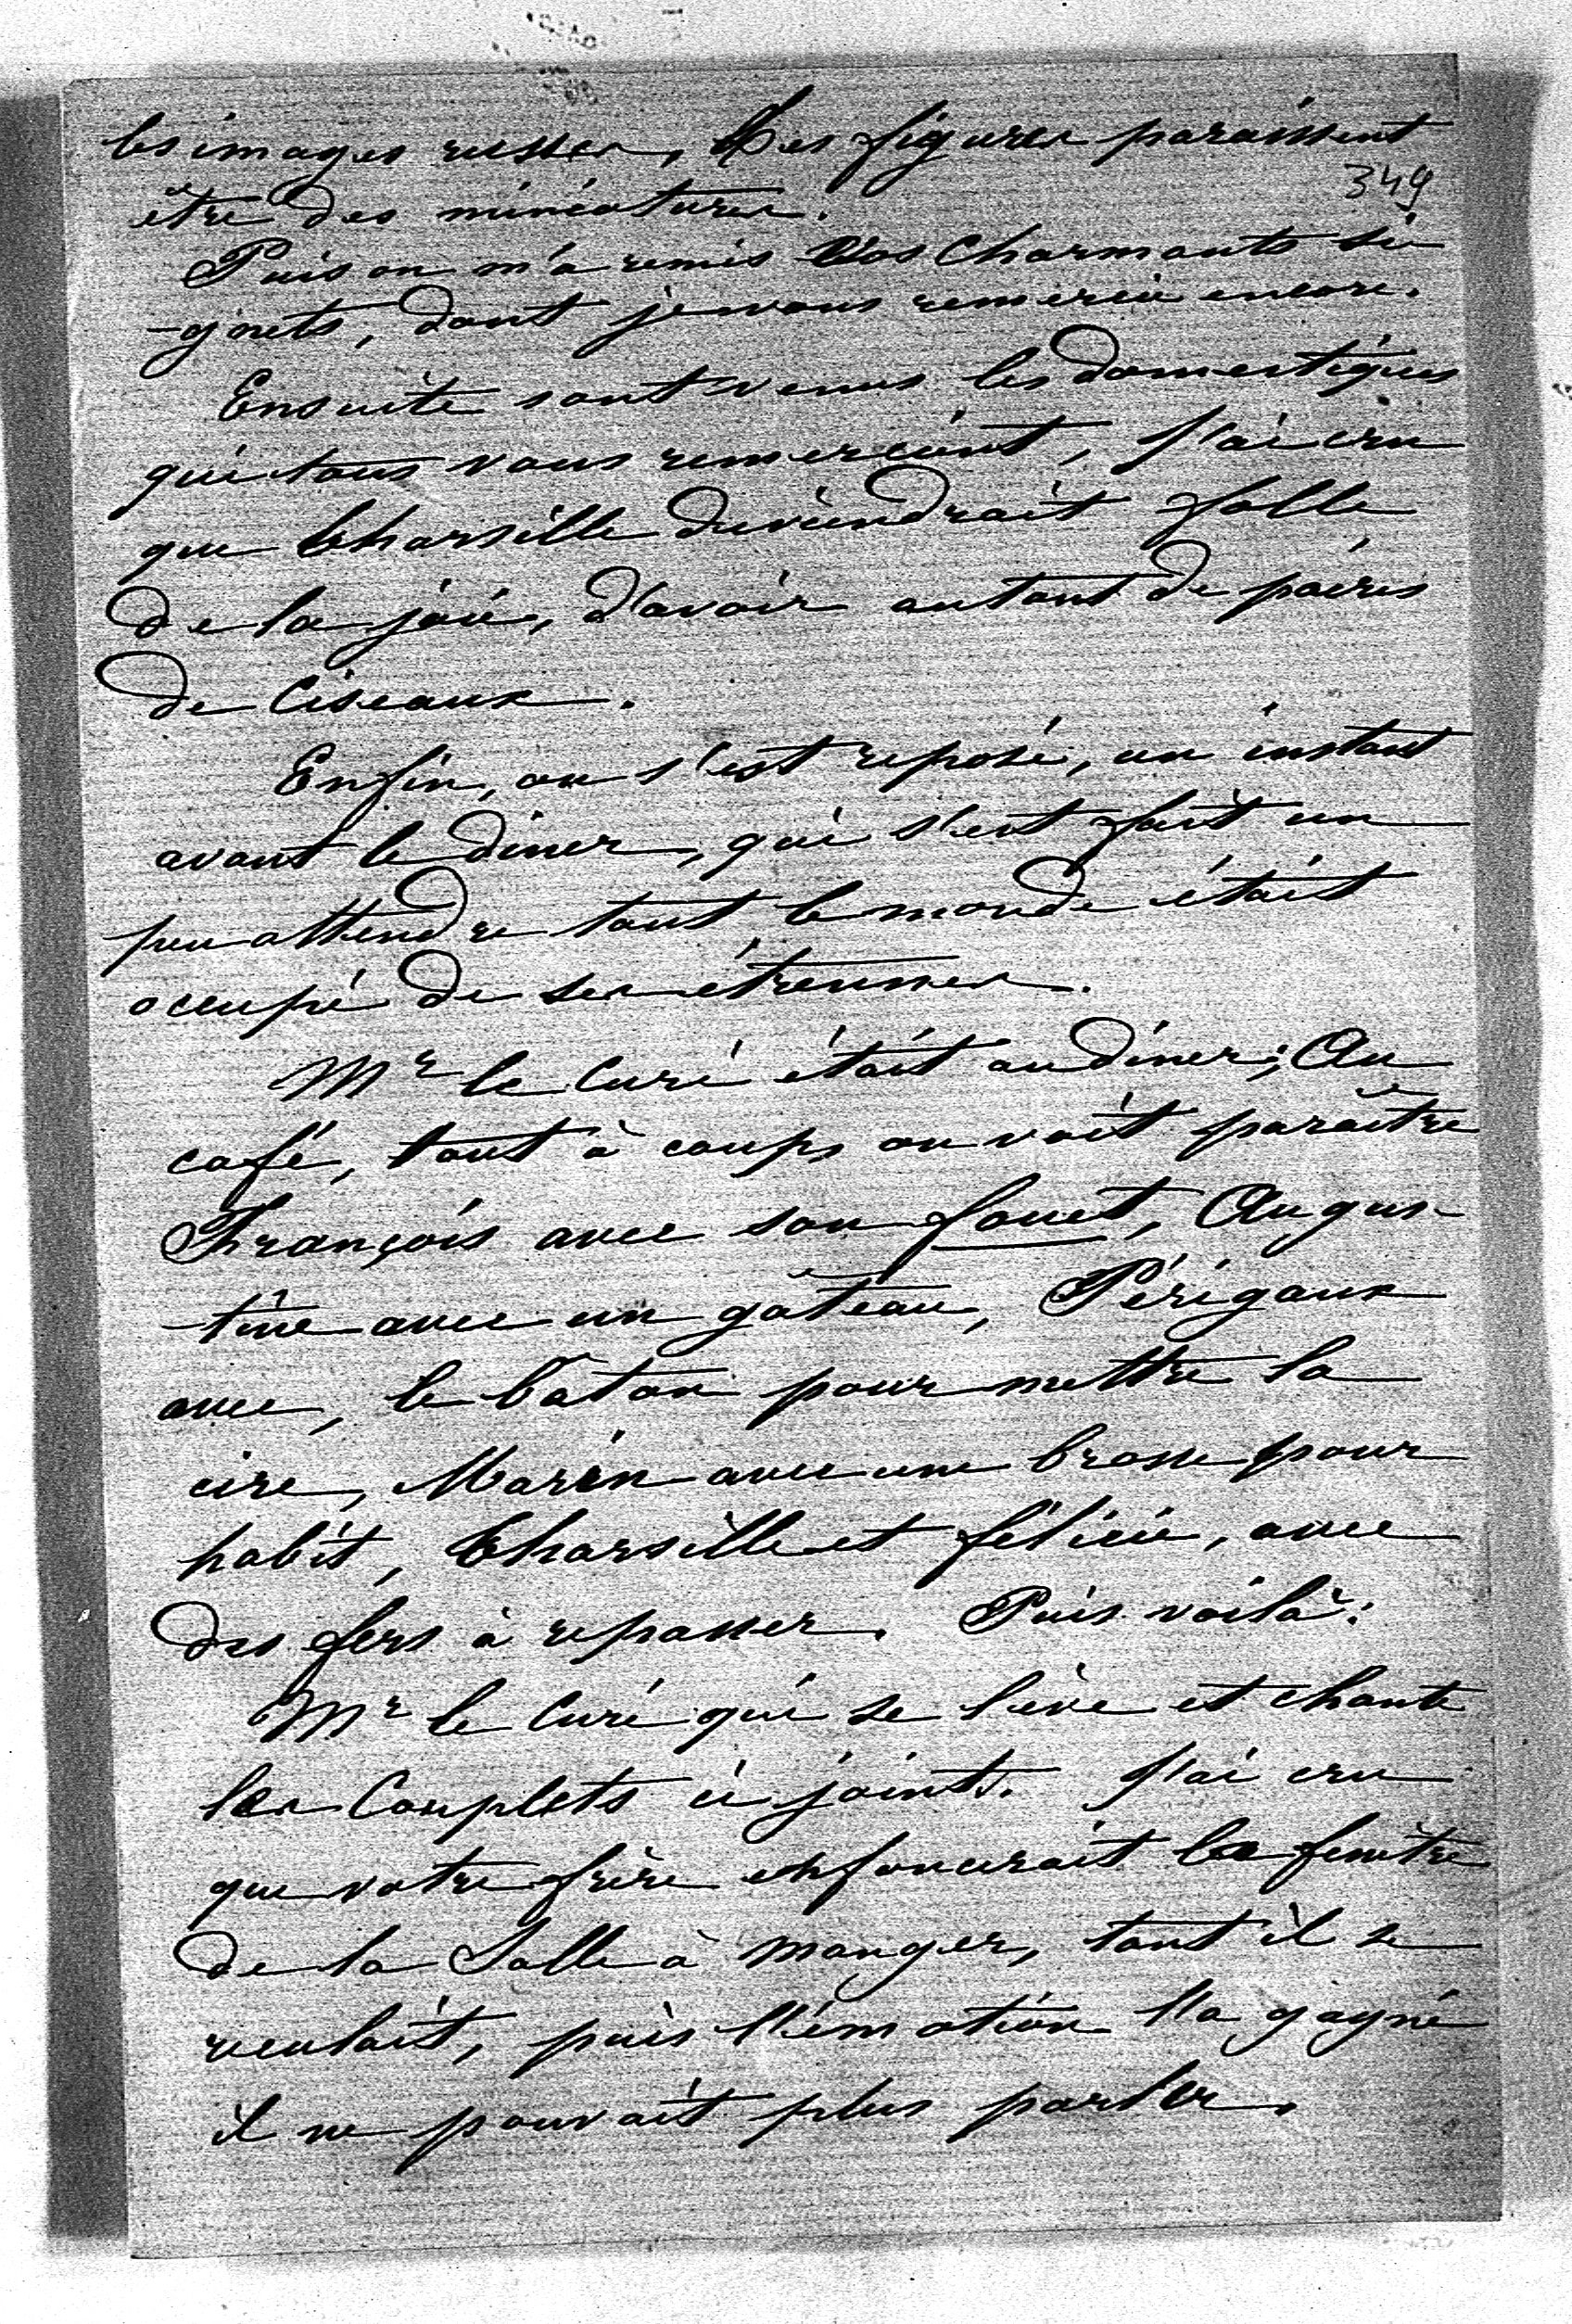 les images russes, Les figures paraissent
349
être des miniatures.
Puis on m'a remis Vos Charmants si
-gnets, dont je vous remercie encore.
Ensuite sont venus les domestiques
qui tous vous remercient, J'ai cru
que Tharsille deviendrait folle
de la joie, d'avoir autant de paires
de Ciseaux.
Enfin, on s'est reposé, un instant
avant le diner, qui s'est fait un
peu attendre tant le monde était
occupé de ses étrennes.
Mr le Curé était au diner; Au
café, tout à coup, on voit paraître
François avec son fouet, Augus-
-tine avec un gâteau, Périgaux
avec, le bâton pour mettre la
cire, Marin avec une brosse pour
habit, Tharsille et félicie, avec
des fers à repasser. Puis voilà:
Mr le Curé qui se lève et chante
les Couplets ci joints. J'ai cru
que votre frère enfoncerait la fenêtre
de la Salle à manger, tant il se
reculait, puis l'émotion l'a gagné
il ne pouvait plus parler.